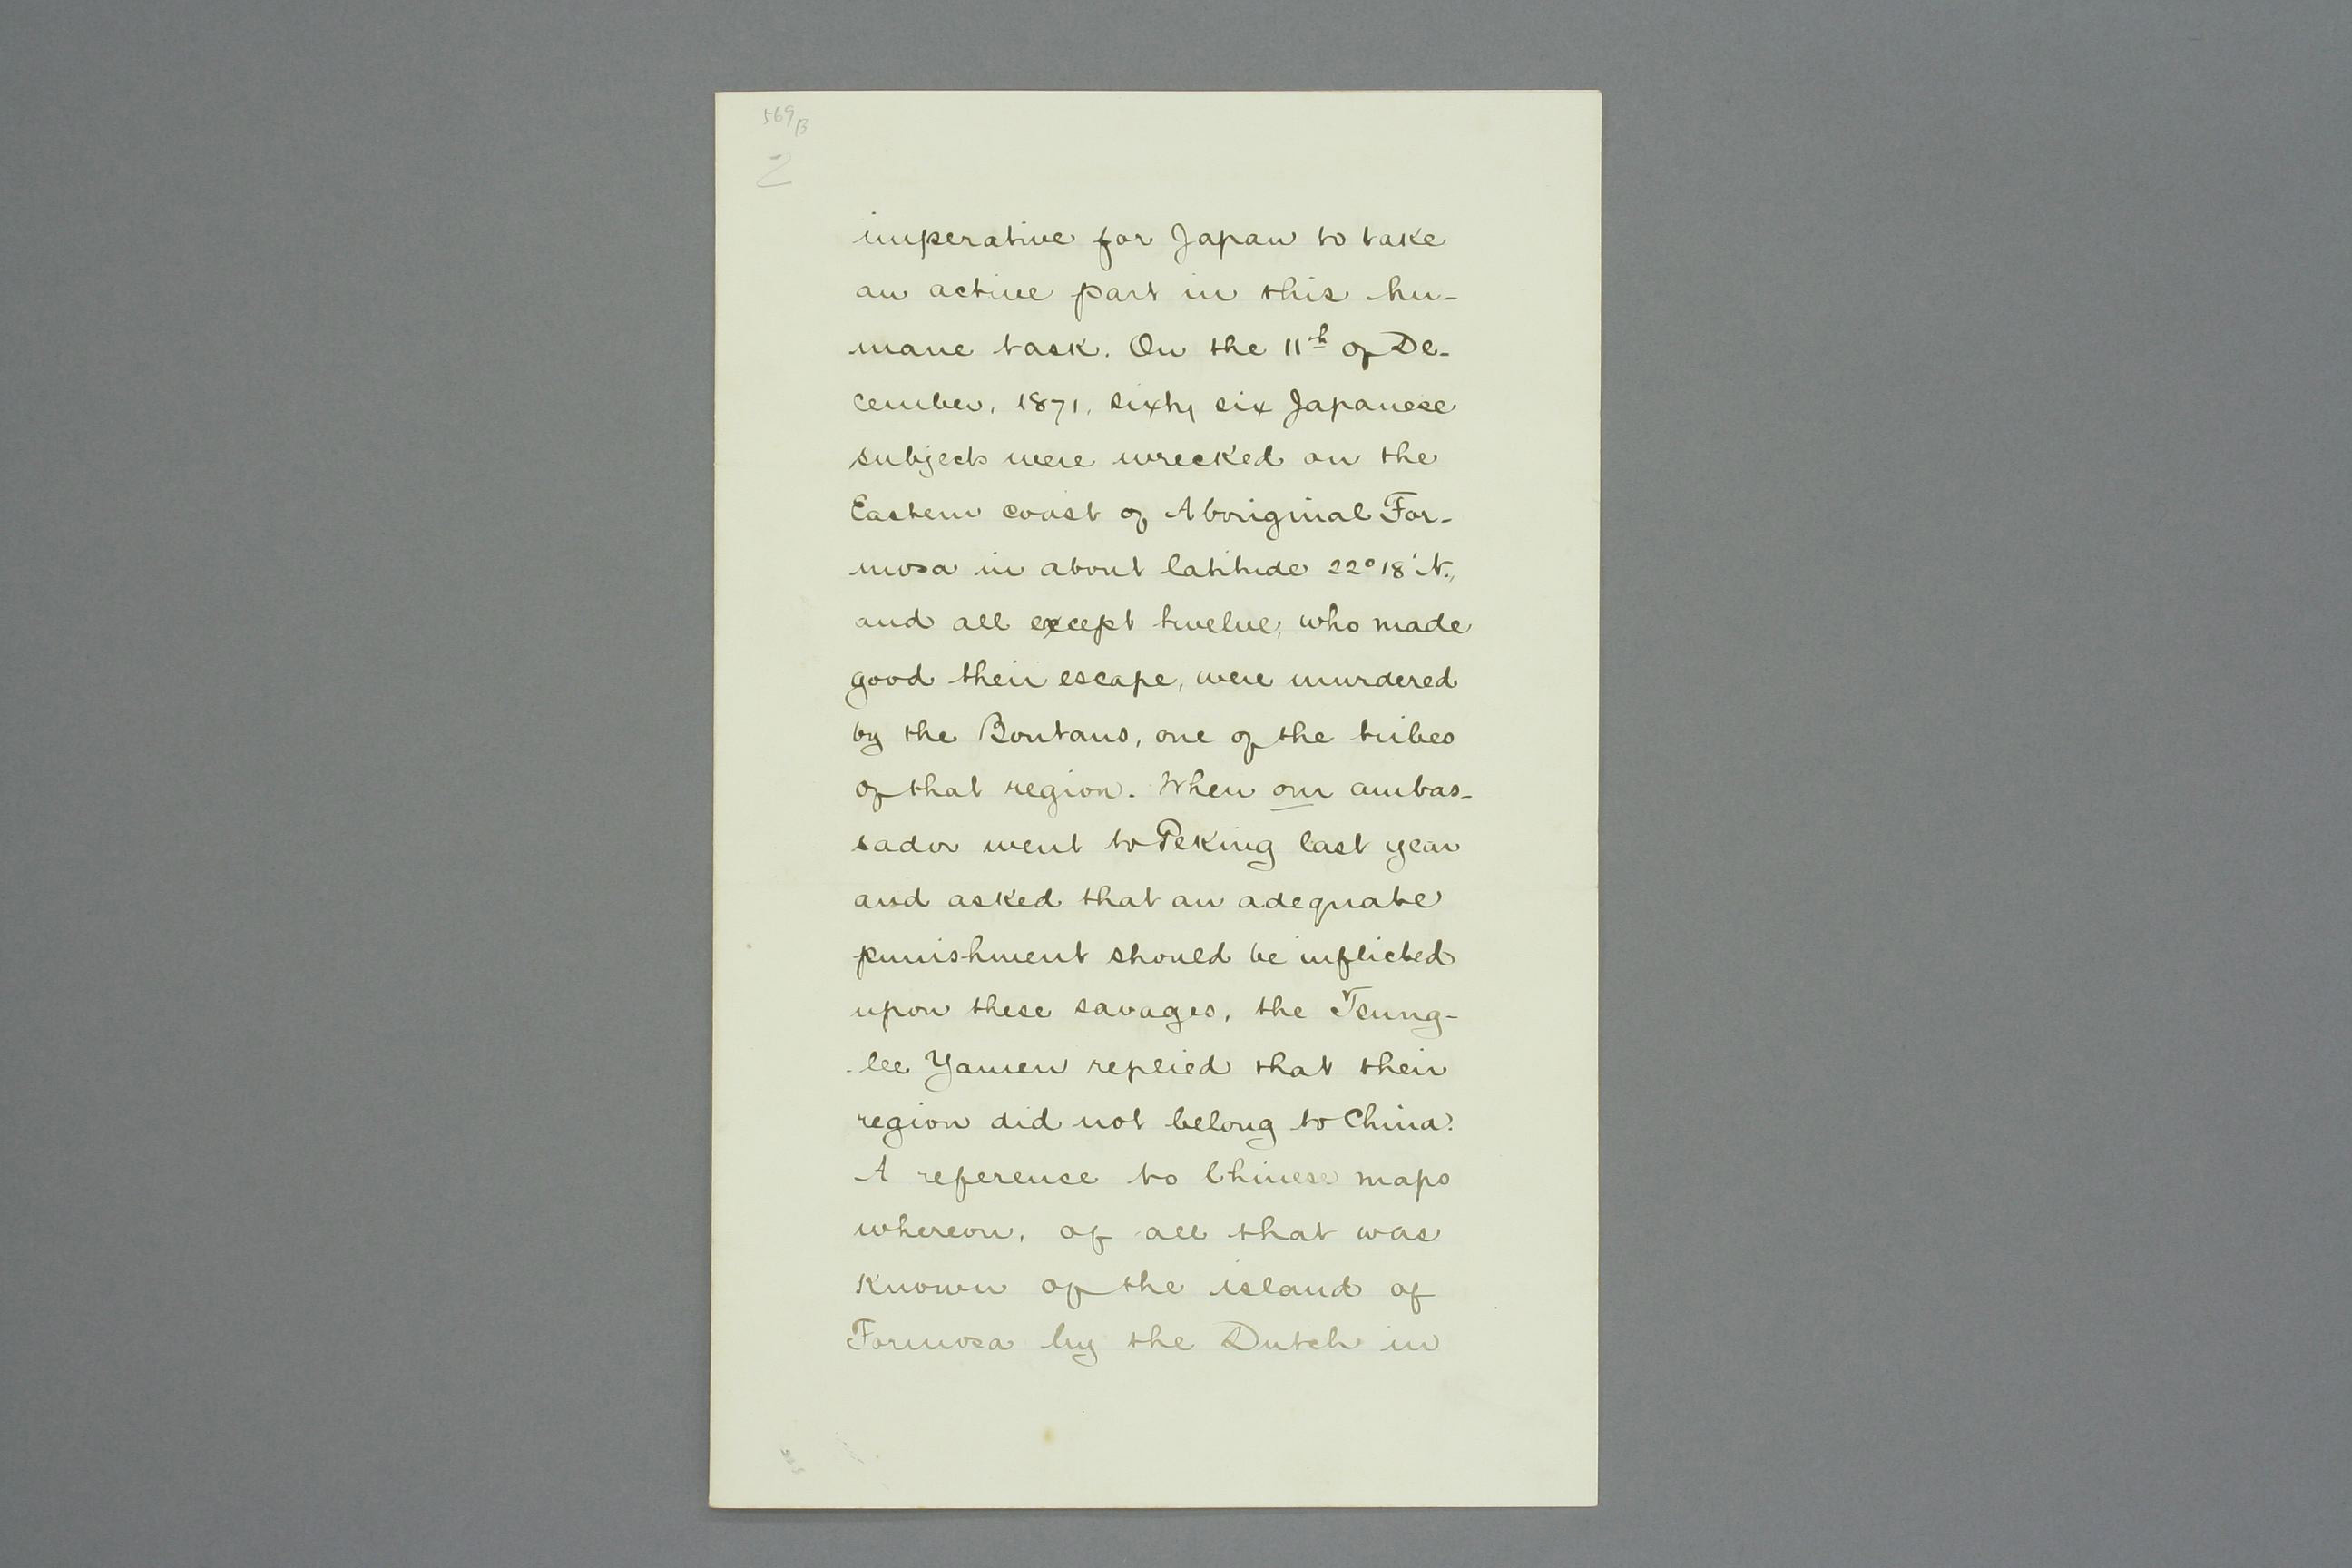 569B
2
imperative for Japan to take
an active part in this hu-
mane task. On the 11th of De-
cember, 1871, sixty six Japanese
subjects were wrecked on the
Eastern coast of Aboriginal For-
mosa in about latitude 22°18' N.,
and all except twelve, who made
good their escape, were murdered
by the Boutans, one of the tribes
of that region. When our ambas-
sador went to Peking last year
and asked that an adequate
punishment should be inflicted
upon these savages, the Tsung-
-lee Yamen replied that their
region did not belong to China.
A reference to Chinese maps
whereon, of all that was
known of the island of
Formosa by the Dutch in